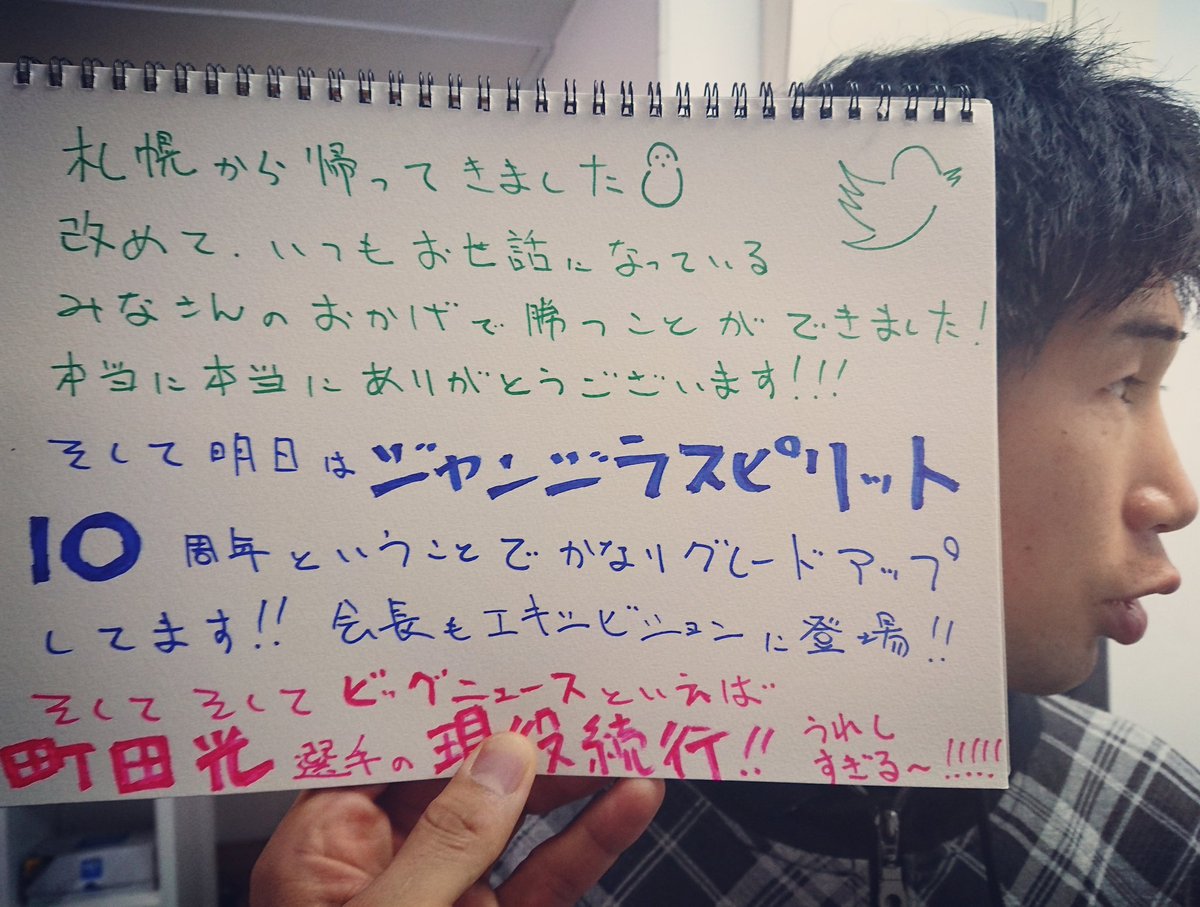 札幌から帰ってきました
改めて、いつもお世話になっている
みなさんのおかげで勝つことができました!
本当に本当にありがとうございます!!!
そして明日はジャンジラスピリット
10周年ということでかなりグレードアップ
してます!!会長もエキシビションに登場!!
そしてそしてビッグニュースといえば
町田光選手の現役続行!!うれし
すぎる〜!!!!!